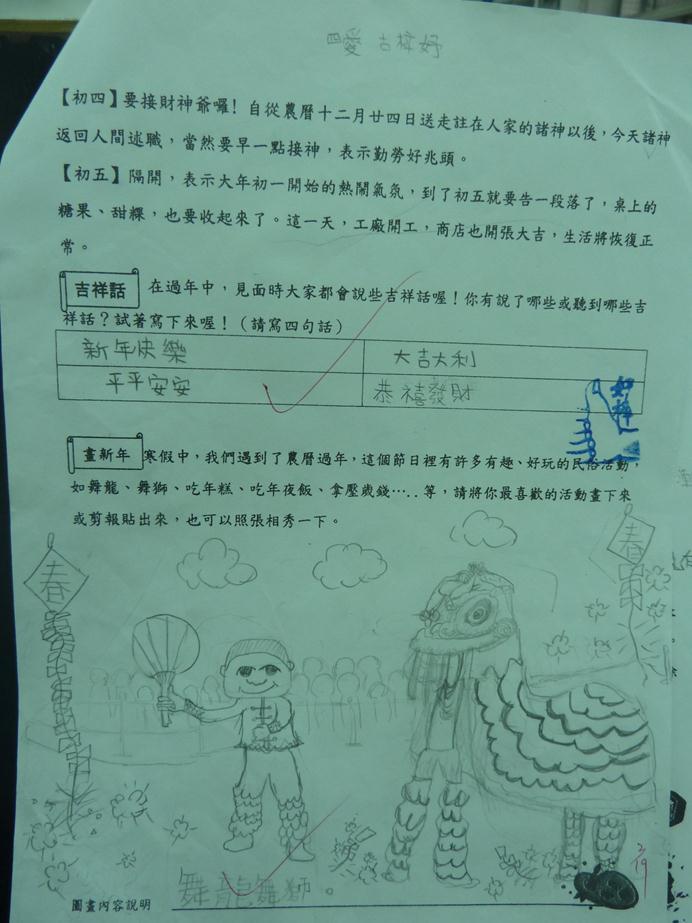 四愛 古梓妤
【初四】要接財神爺囉！自從農曆十二月廿四日送走註在人家的諸神以後，今天諸神
返回人間述職，當然要早一點接神，表示勤勞好兆頭。
【初五】隔開，表示大年初一開始的熱鬧氣氛，到了初五就要告一段落了，桌上的
糖果、甜粿，也要收起來了。這一天，工廠開工，商店也開張大吉，生活將恢復正
常。
吉祥話 在過年中，見面時大家都會說些吉祥話喔！你有說了哪些或聽到哪些吉
祥話？試著寫下來喔！（請寫四句話）
新年快樂 大吉大利
平平安安 恭禧發財
畫新年 寒假中，我們遇到了農曆過年，這個節日裡有許多有趣、好玩的民俗活動，
如舞龍、舞獅、吃年糕、吃年夜飯、拿壓歲錢…..等，請將你最喜歡的活動畫下來
或剪報貼出來，也可以照張相秀一下。
春
春
舞龍舞獅。
圖畫內容說明
2/19